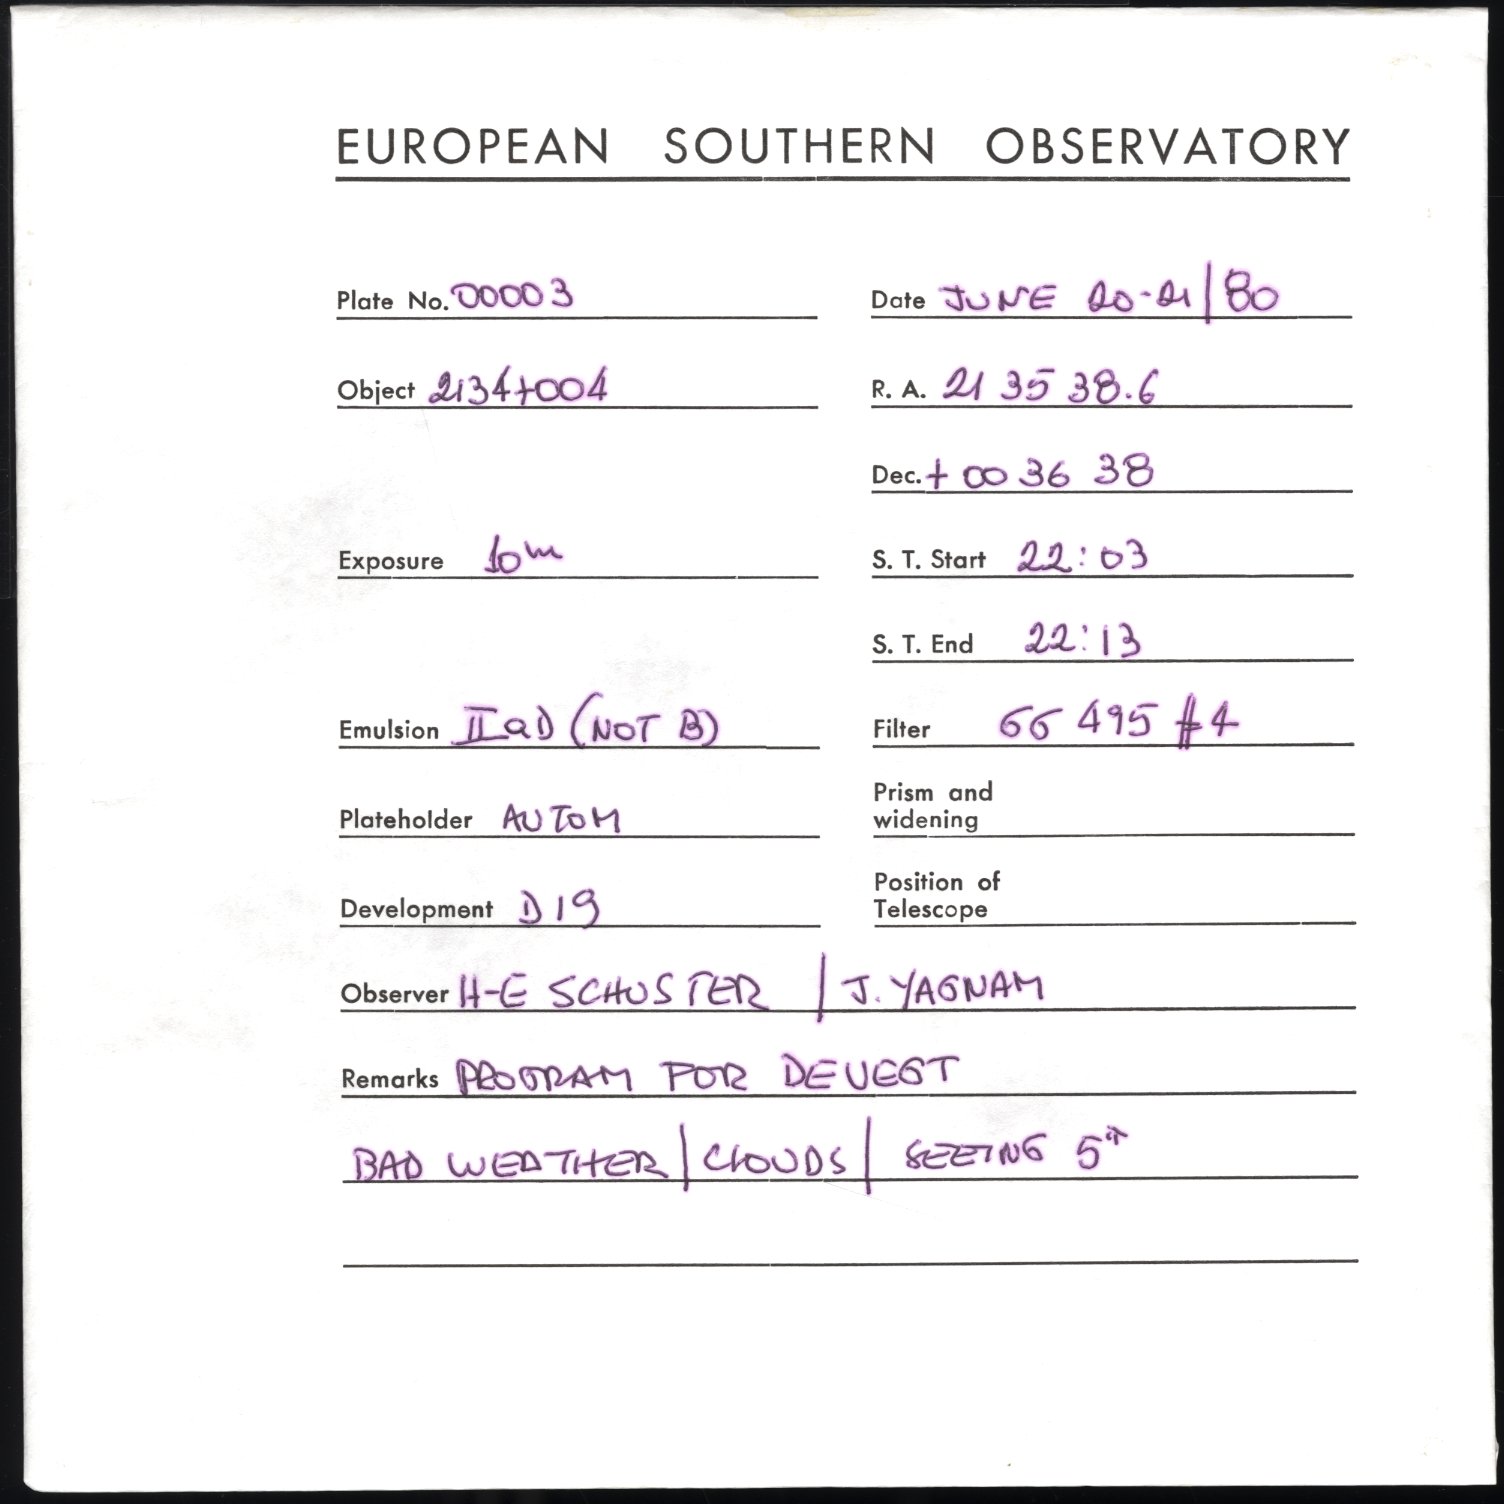 EUROPEAN SOUTHERN OBSERVATORY
Plate No. 00003
Date JUNE 20-21/80
Object 2134+004
R. A. 21 35 38.6
Dec. + 00 36 38
Exposure 10m
S. T. Start 22:03
S. T. End 22:13
Emulsion IIaD (NOT B)
Filter GG 495 #4
Plateholder AUTOM
Prism and
widening
Development D19
Position of
Telescope
Observer H-E SCHUSTER / J. YAGNAM
Remarks PROGRAM FOR DEVEGT
BAD WEATHER | CLOUDS | SEEING 5"